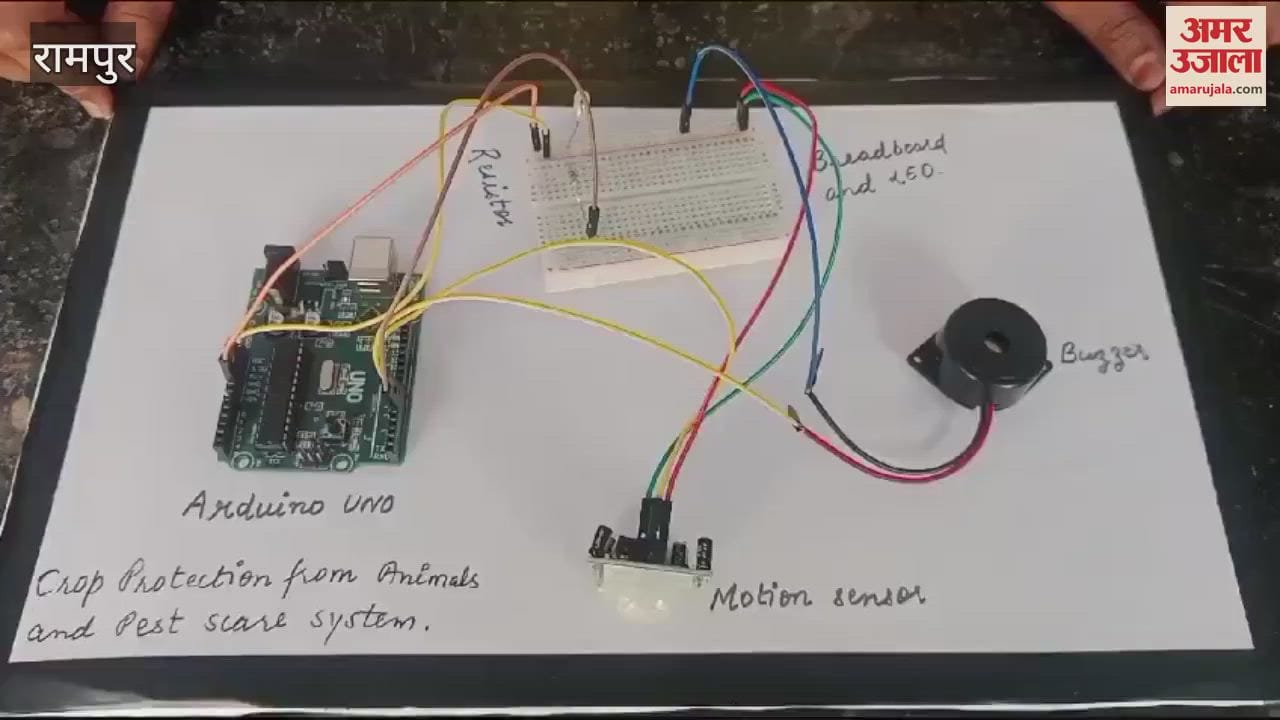 रामपुर
अमर
उजाला
amarujala.com
Resistor
Breadboard
and LED.
Buzzer
UNO
Arduino UNO
Crop Protection from Animals
and Pest scare system.
Motion sensor